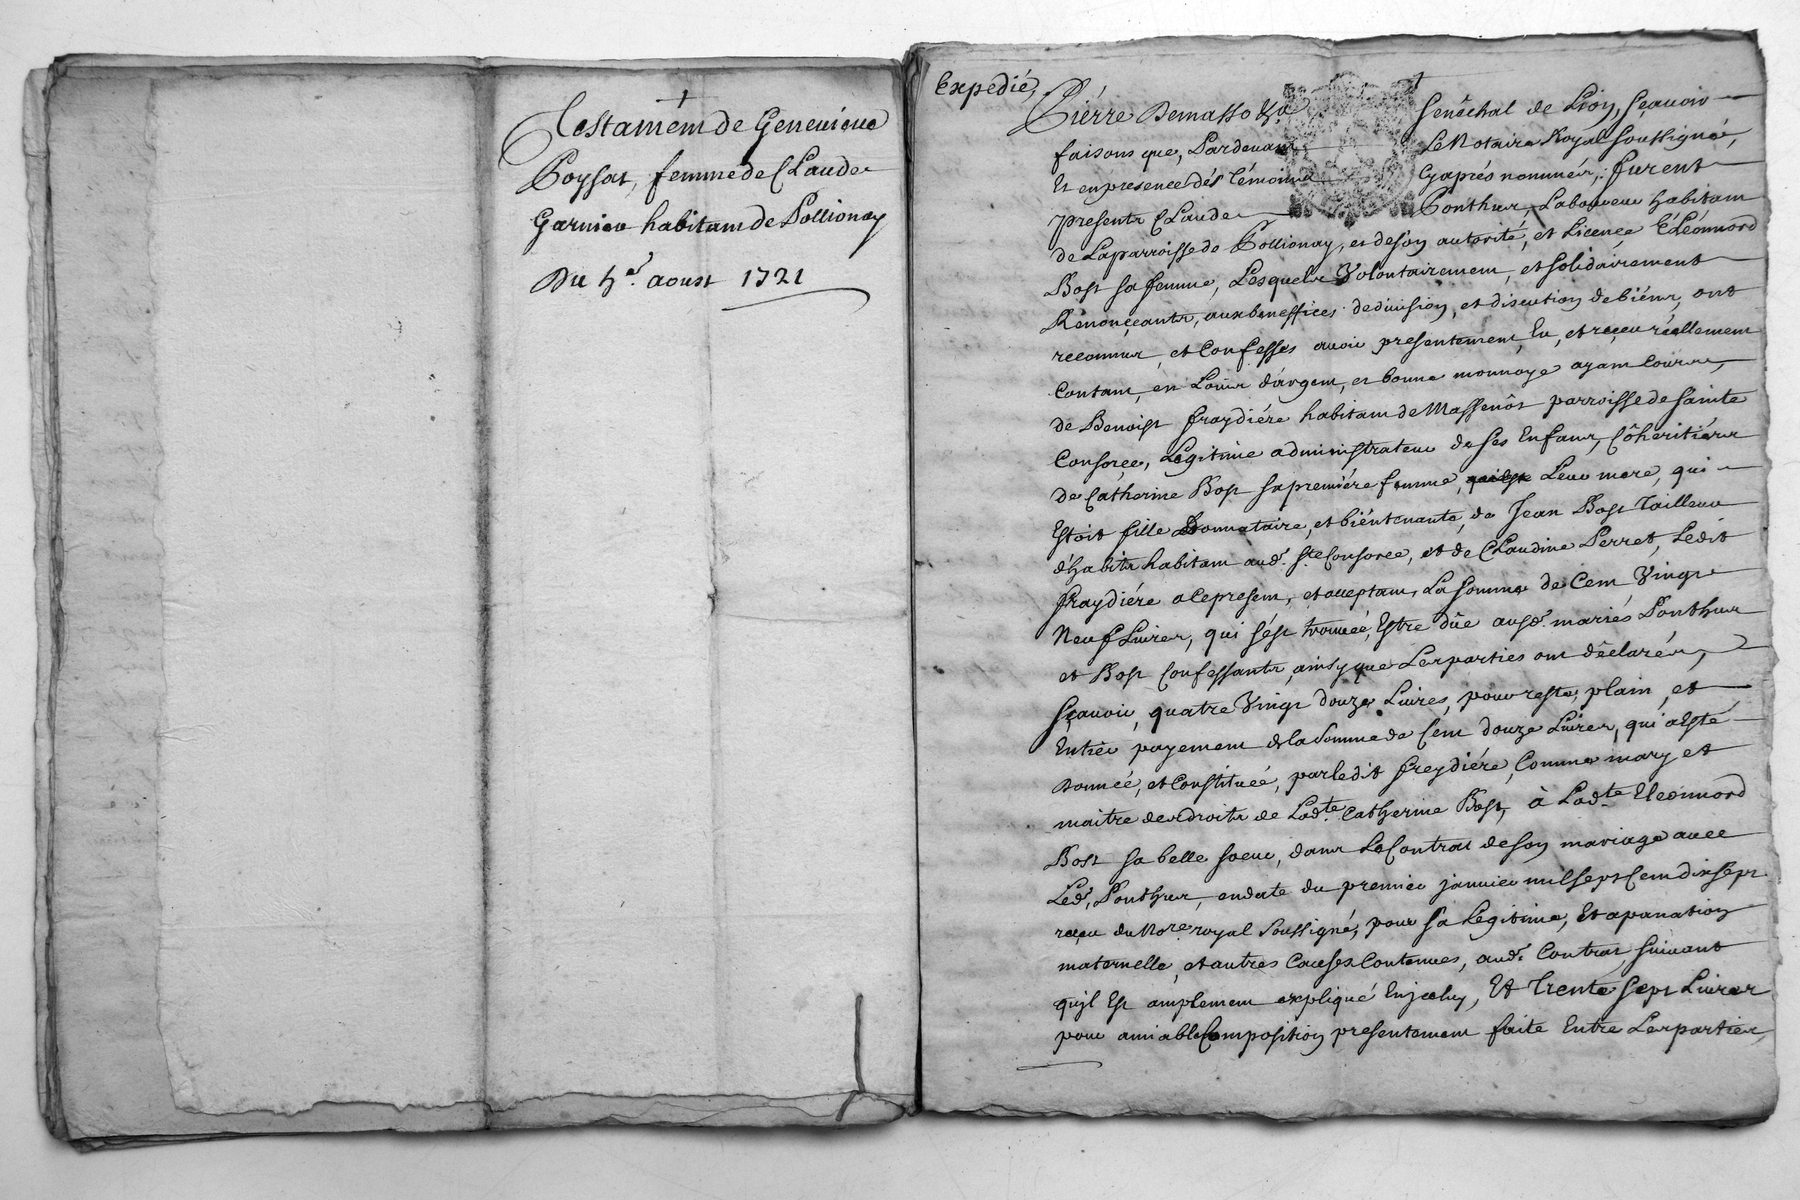 Testament de Genevieve
Poysat, femme de Claude
Garnier habitant de Pollionay
Du 5e. aoust 1721
Expedié,
Pierre Demasso &a Senêchal de Lion, sçavoir
faisons que, Pardevant Le Notaire Royal soussigné,
Et en presence dés témoins Cyaprés nommés, furent
presents Claude Ponthus, Laboureur habitant
de La parroisse de Pollionay, et de son autorité, et Licence Eléonnord
Bost sa femme, Lesquels Volontairement, et solidairement
Rénonçeants, aux beneffices de division, et discution de biéns, ont
reconnus, et Confessés avoir presentement, Eu, et reçeu réellement
Contant, en Loüis d'argent, et bonne monnoye ayant Cours,
de Benoist fraydiére habitant de Massenôt parroisse de sainte
Consorçe, Légitime administrateur de ses Enfans, Côheritiérs
de Catherine Bost sa premiére femme, Leur mere, qui
Estoit fille Donnataire, et biéntenante, de Jean Bost Tailleur
d'habits habitant aud. Ste Consorce, et de Claudine Perret, Ledit
fraydiére a Ce present, et acceptant, La somme de Cent Vingt
Neuf Livres, qui s'est trouvéé, Estre düe ausd. mariés Ponthus
et Bost Confessants, ainsy que Les parties ont déclarés,
sçavoir, quatre Vingt douze Livres, pour reste, plain, et
Entiér payement de la somme de Cent douze Livres, qui a Esté
donnéé, et Constituéé, par ledit freydiére, Comme mary et
maitre des droits de Lad.te Catherine Bost, à Lad.te Eleonnord
Bost sa belle soeur, dans Le Contrat de son mariage avec
Led. Ponthus, en date du premier janvier mil sept Cent dix sept
reçu du No.re royal soussigné, pour sa Legitime, Et apanation
maternelle, et autres Causes Contenues, aud. Contrat, suivant
qu'jl Est amplement expliqué En jceluy, Et Trente sept Livres
pour amiable Composition presentement faite Entre Les parties,